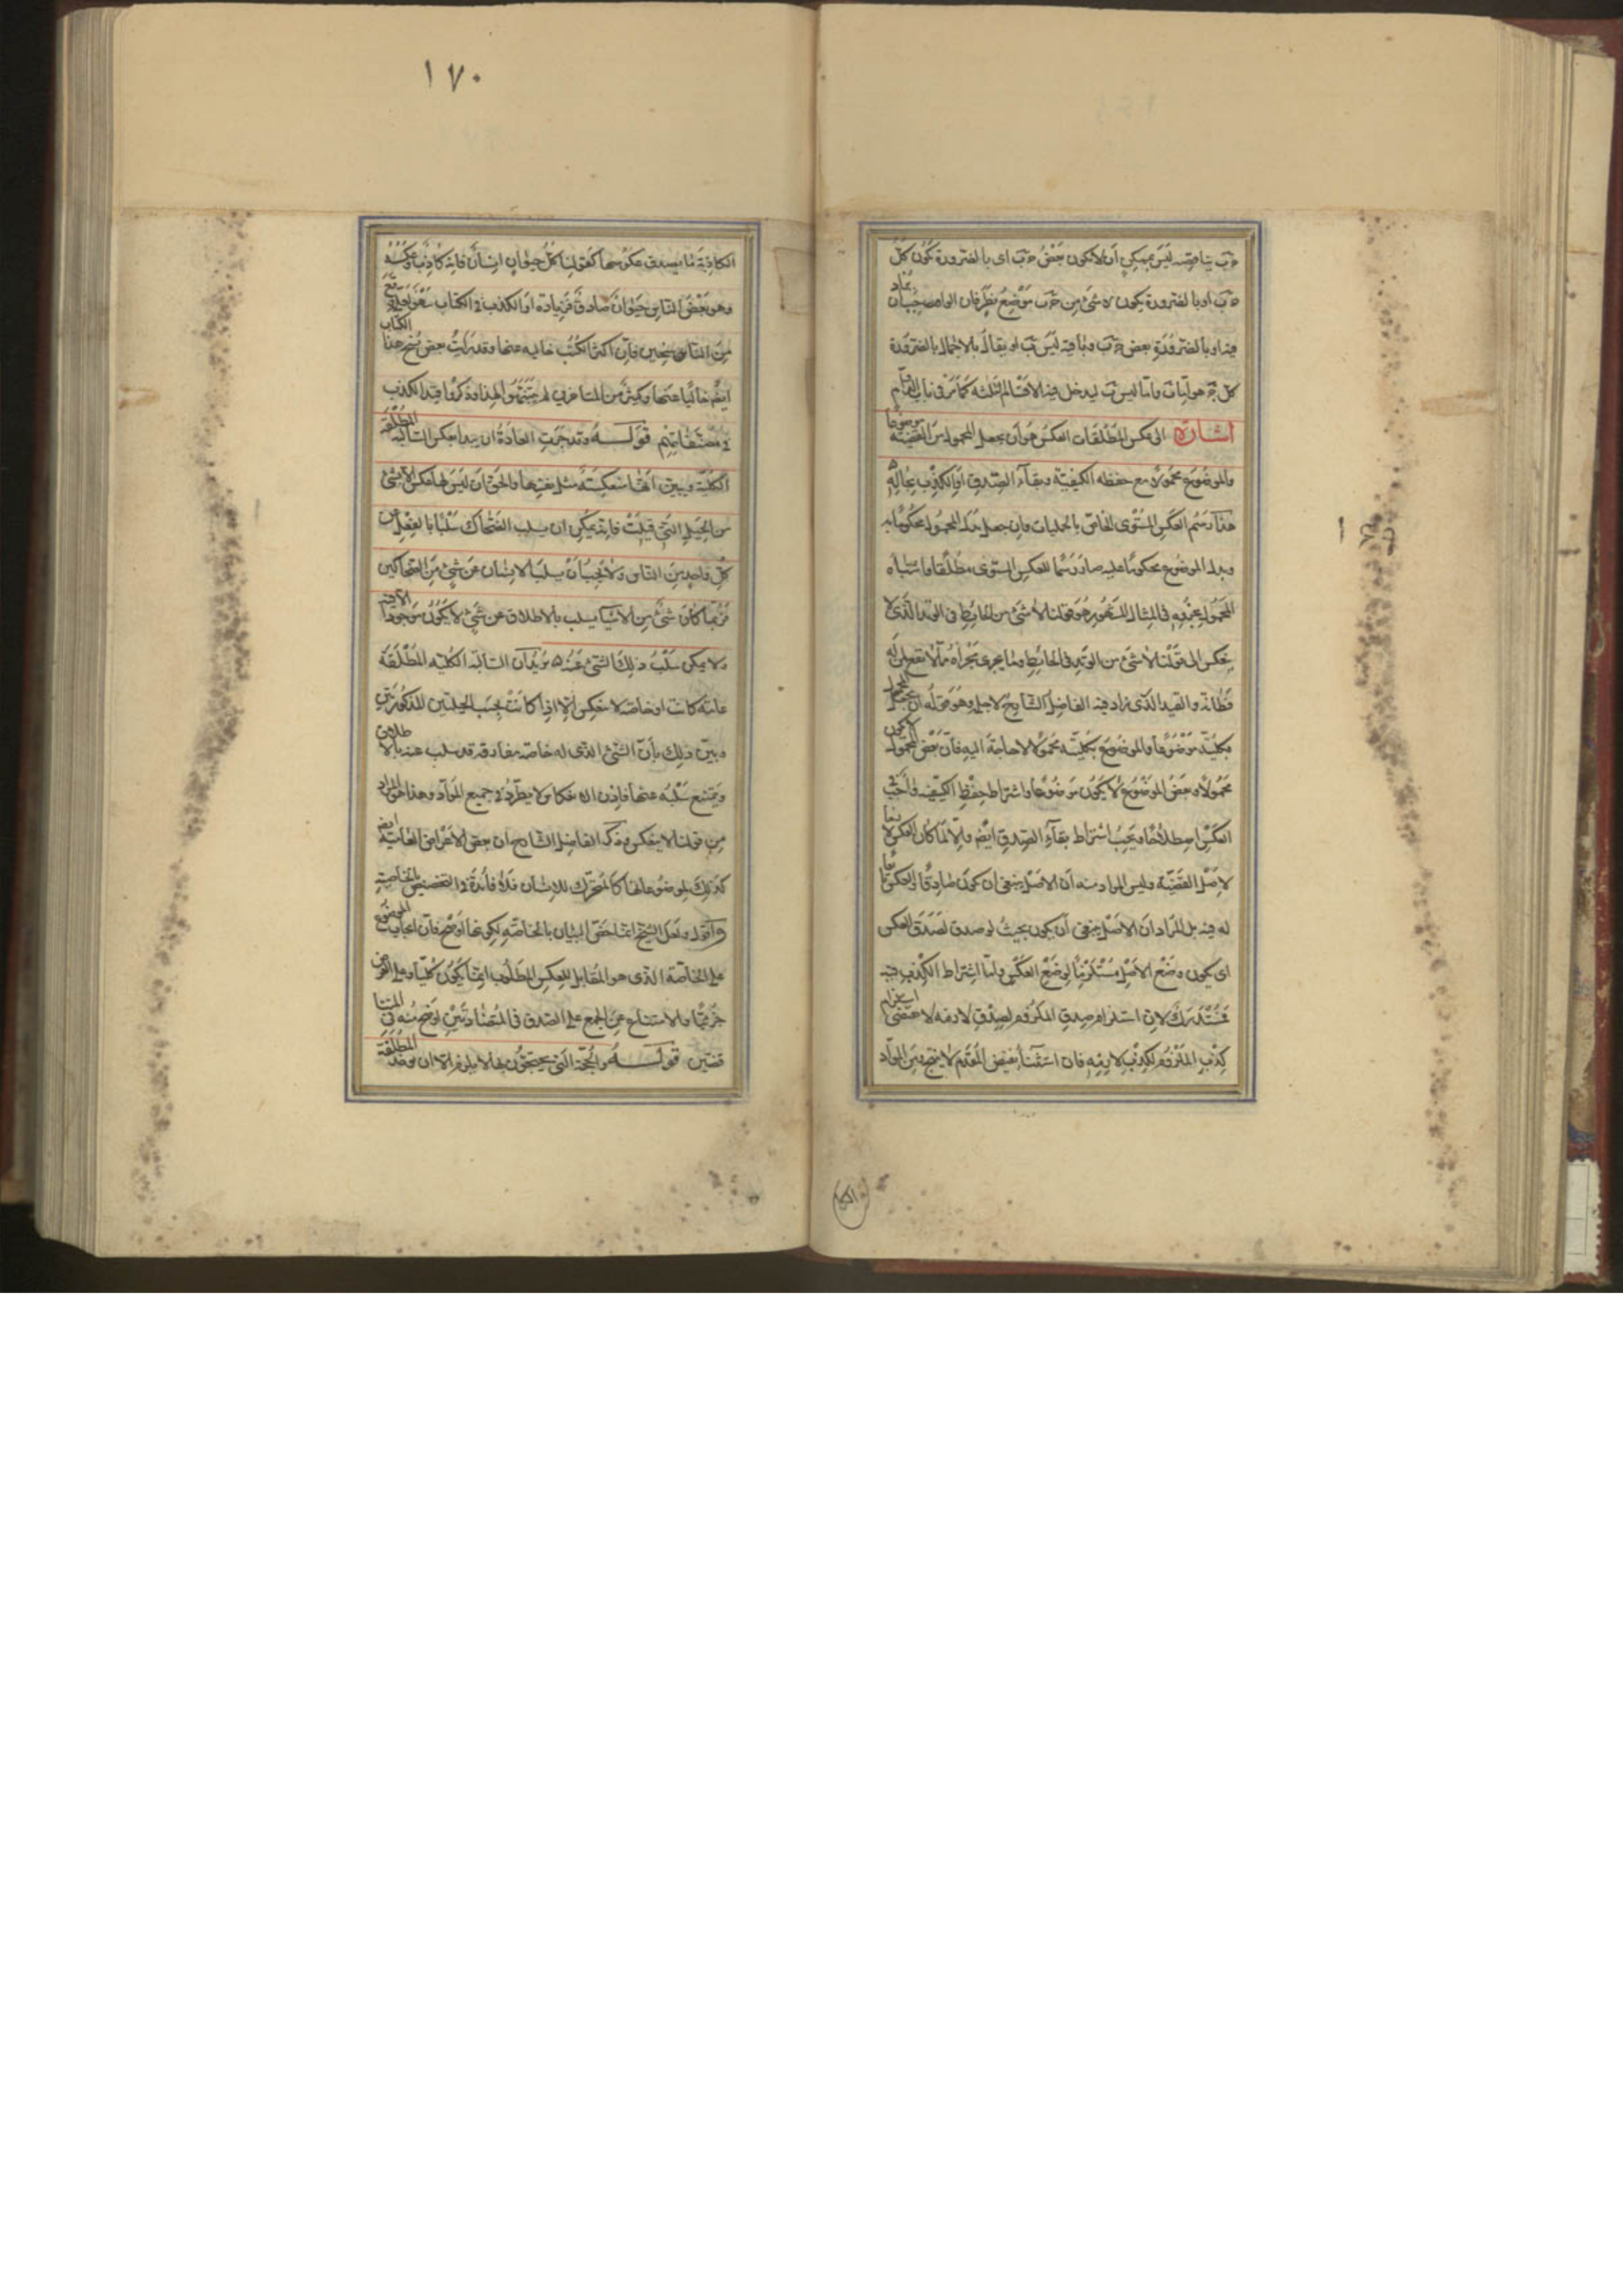 ١٧٠
ج ب يناقضه ليس بممكن أن لا يكون بعض ج ب اى بالضرورة يكون كل
ج ب او بالضرورة يكون لا شئ من ج ب موضع نظر فان الواجب أن
فيه او بالضرورة بعض ج ب وباقيه ليس ب او يقال بالاجمال بالضرورة
كل ج هو اما ب واما ليس ب ليدخل فيه الاقسام الثلثه كما مر فى باب
اشارة الى عكس المطلقات العكس هو أن يجعل المحمول من القضية موضوعا
والموضوع محمولا مع حفظ الكيفية وبقاء الصدق او الكذب بحاله
هذا رسم العكس المستوى الخاص بالحمليات فان جعل بدل المحمول محكوما به
وبدل الموضوع محكوما عليه صار رسما للعكس المستوى مطلقا واشتباه
المحمول بجزئه فى المثال المشهور هو قولنا لا شئ من الحائط فى الوتد الذى لا
ينعكس الى قولنا لا شئ من الوتد فى الحائط وما يجرى مجراه مما لا تفطن له
فظانه والقيد الذى زاد فيه الفاضل الشارح لاجله وهو قوله ان يجعل المحمول
بكليته موضوعا والموضوع بكليته محمولا لا حاجة اليه فان بعض المحمول لا يكون
محمولا وبعض الموضوع لا يكون موضوعا واشتراط حفظ الكيفية واجب
العكس اصطلاحا ويجب اشتراط بقاء الصدق ايضا والا لما كان العكس لازما
لاصل القضية وليس المراد منه ان الاصل ينبغى ان يكون صادقا والعكس تابعا
له فيه بل المراد ان الاصل ينبغى أن يكون بحيث لو صدق لصدق العكس
اى يكون وضع الاصل مستلزما لوضع العكس واما اشتراط الكذب فيه
فمستدرك لان استلزام صدق الملزوم لصدق لازمه لا يقتضى استلزام
كذب الملزوم لكذب لازمه فان استثناء نقيض المقدم لا ينتج ومن المواد
الكاذبة ما يصدق عكوسها كقولنا كل حيوان انسان فانه كاذب وعكسه
وهو بعض الناس حيوان صادق فزيادة او الكذب فى الكتاب سهو وقع
من الناسخين فان اكثر الكتب خاليه عنها وقد رأت بعض نسخ هذا الكتاب
ايضا خاليا عنها وكثير من المتاخرين لم يتنبهوا لهذا وذكروا قيد الكذب
فى مصنفاتهم قوله وقد جرت العادة ان يبدأ بعكس السالبة المطلقة
الكلية ويبين انها منعكسة مثل نفسها والحق ان ليس لها عكس الا بشئ
من الحيل التى قيلت فانه يمكن ان يسلب الضحاك سلبا بالفعل عن
كل واحد من الناس ولا يجب أن يسلب الانسان عن شئ من الضحاكين
فربما كان شئ من الاشيا يسلب بالاطلاق عن شئ لا يكون موجودا الا فيه
ولا يمكن سلب ذلك الشئ عنه ه يريد أن السالبه الكليه المطلقة
عامه كانت او خاصه لا تنعكس الا اذا كانت بحسب الحيلتين المذكورتين
وبين ذلك بأن الشئ الذى له خاصه مفارقه قد سلب عنه بالاطلاق
ويمتنع سلبه عنها فاذن الانعكاس لا يطرد فى جميع المواد وهذا هو المراد
من قولنا لا ينعكس وذكر الفاضل الشارح ان بعض الاعراض العامية ايضا
كذلك لموضوعاتها كالمتحرك للانسان فلا فائدة فى التخصيص بالخاصة
وأقول ولعل الشيخ انما خص البيان بالخاصة لكونها اوضح فان ايجاب الموضوع
على الخاصة الذى هو المقابل للعكس المطلوب انما يكون كليا وعلى العرض
جزئيا والامتناع عن الجمع على الصدق فى المتضادتين اوضح منه فى المتنا
قضتين قوله والحجة التى يحتجون بها لا يلزم الا ان يوخذ المطلقة